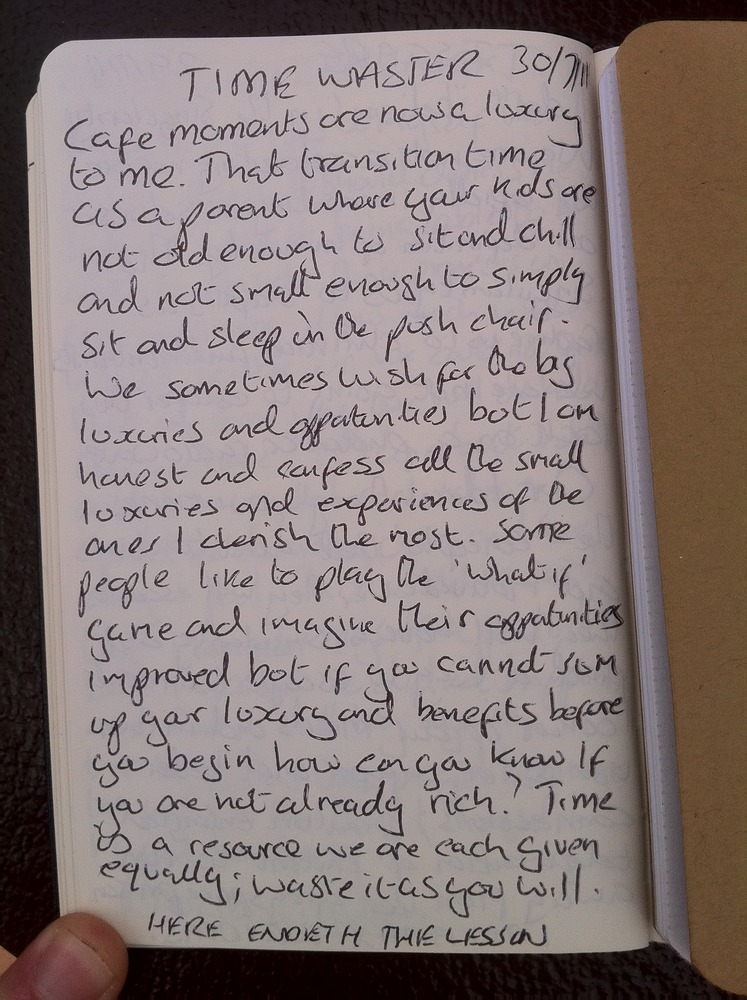 TIME WASTER 30/7/11
Cafe moments are now a luxury
to me. That transition time
as a parent where your kids are
not old enough to sit and chill
and not small enough to simply
sit and sleep in the push chair.
We sometimes wish for the big
luxuries and oppatunities but I am
honest and confess all the small
luxuries and experiences of the
ones I cherish the most. Some
people like to play the 'what if'
game and imagine their oppatunities
improved but if you cannot sum
up your luxury and benefits before
you begin how can you know if
you are not already rich? Time
is a resource we are each given
equally; waste it as you will.
HERE ENDETH THE LESSON